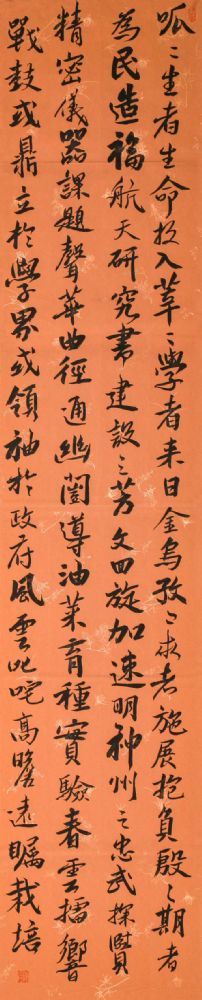 呱〻生者生命投入莘〻學者来日金烏孜〻求者施展抱負殷〻期者
為民造福航天研究書建設之芳文回旋加速明神州之忠武探
精密儀器課題聲華曲徑通幽導油菜育種實驗春雲擂響
戰鼓或鼎立於學界或領袖於政府風雲叱咤高瞻遠矚栽培